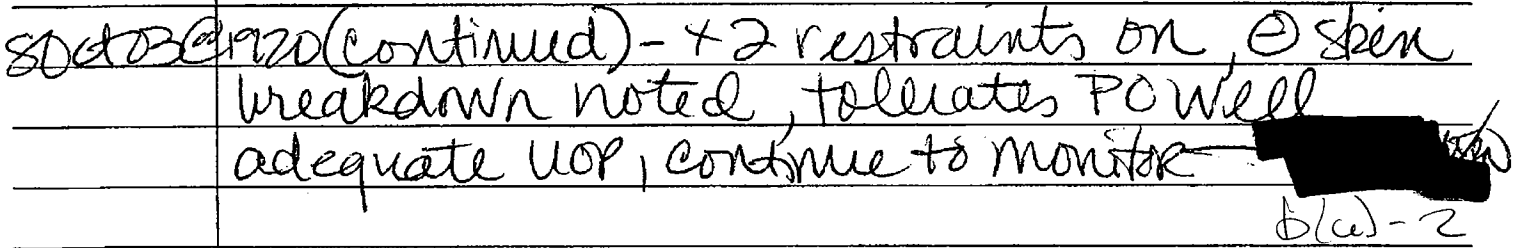 8Oct03@1920 (continued) - x2 restraints on, ⊖ skin
breakdown noted, tolerates PO well
adequate UOP, continue to monitor
b(6)-2